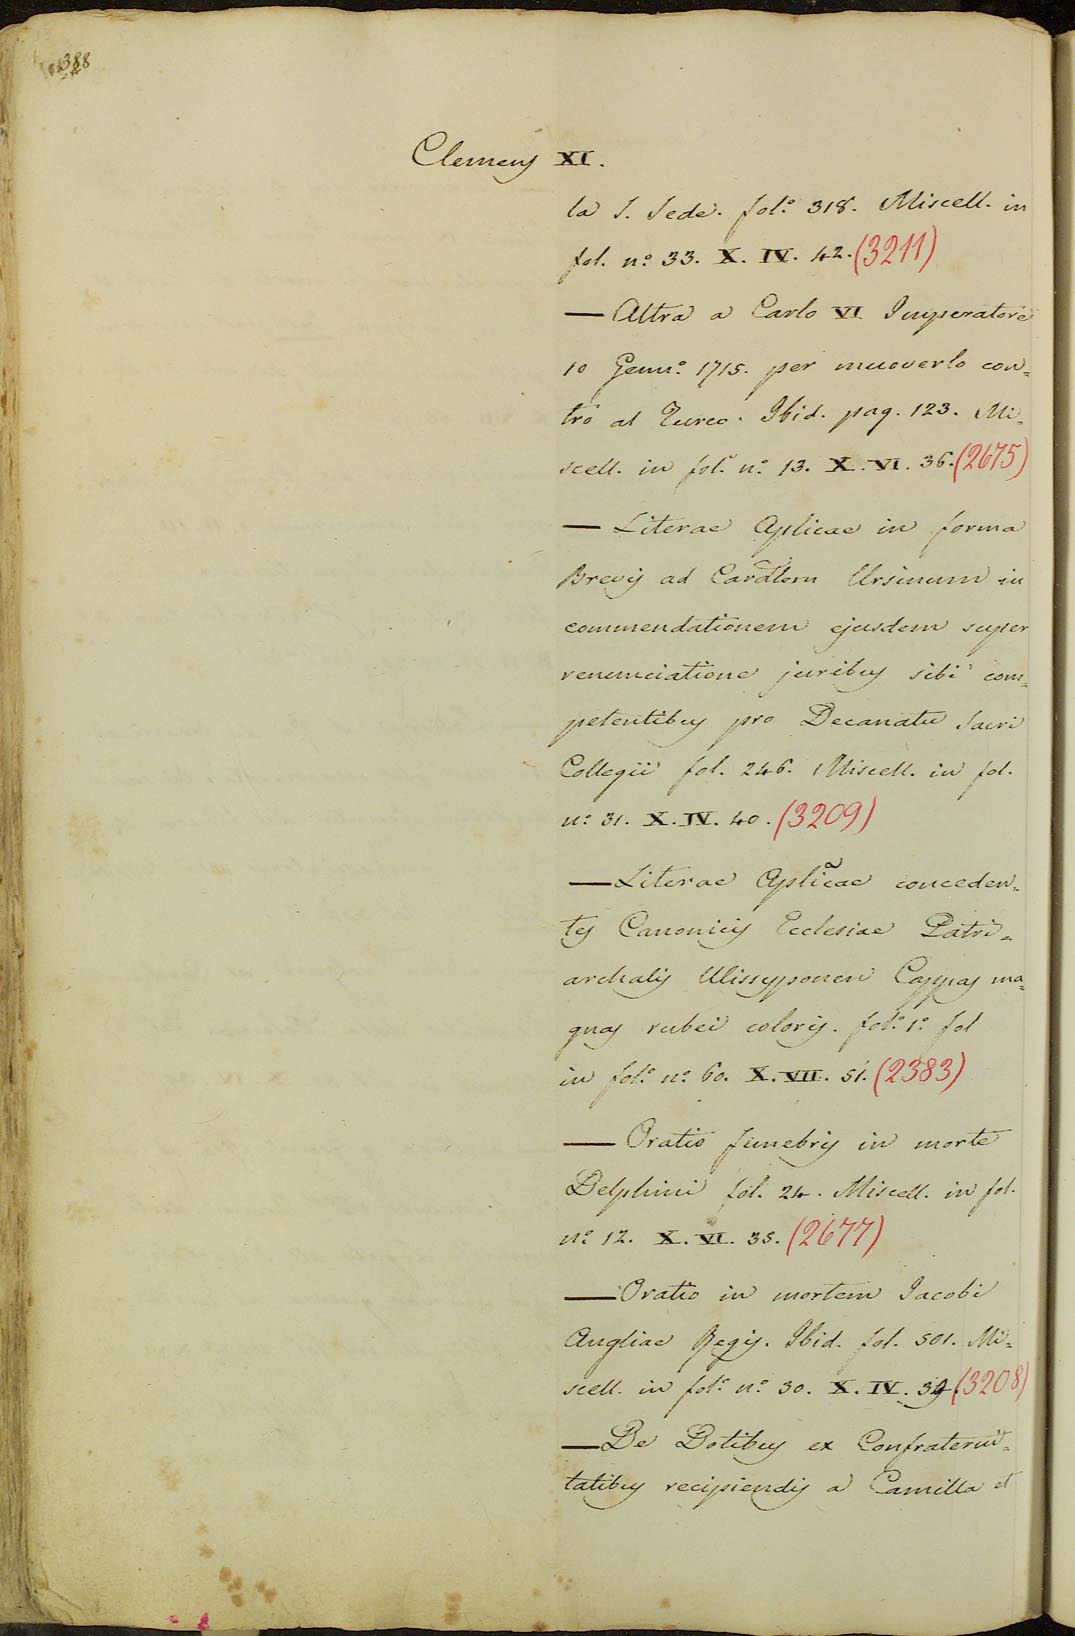 388
Clemens XI.
la S. Sede. fol.º 318. Miscell. in
fol. nº 33. X. IV. 42. (3211)
— Altra a Carlo VI Imperatore
10 Genn.º 1715. per muoverlo con=
tro al Turco. Ibid. pag. 123. Mi=
scell. in fol.º nº 13. X. VI. 36. (2675)
— Literae Aplicae in forma
Brevis ad Cardlem Ursinum in
commendationem ejusdem super
renunciatione juribus sibi com=
petentibus pro Decanatu Sacri
Collegii fol. 246. Miscell. in fol.
nº 31. X. IV. 40. (3209)
— Literae Aplicae conceden=
tes Canonicis Ecclesiae Patri=
archalis Ulissyponen Cappas ma=
gnas rubei coloris. fol.º 1.º fol
in fol.º nº 60. X. VII. 51. (2383)
— Oratio funebris in morte
Delphini fol. 24. Miscell. in fol.
nº 12. X. VI. 35. (2677)
— Oratio in mortem Jacobi
Angliae Regis. Ibid. fol. 501. Mi=
scell. in fol.º nº 30. X. IV. 39. (3208)
— De Dotibus ex Confraterni=
tatibus recipiendis a Camilla et